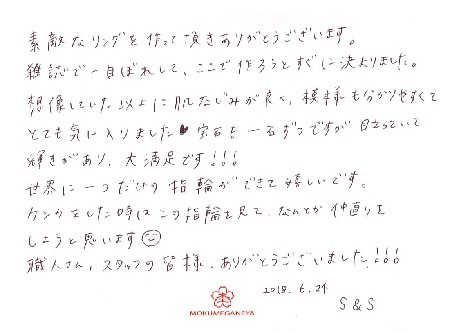 素敵なリングを作って頂きありがとうございます。
雑誌で一目ぼれして、ここで作ろうとすぐに決まりました。
想像していた以上に肌なじみが良く、模様も分かりやすくて
とても気に入りました♥宝石も一石ずつですが目立っていて
輝きがあり、大満足です!!!
世界に一つだけの指輪ができて嬉しいです。
ケンカをした時はこの指輪を見て、なんとか仲直りを
しようと思います☺
職人さん、スタッフの皆様、ありがとうございました!!!
2018.6.24
S&S
MOKUMEGANEYA